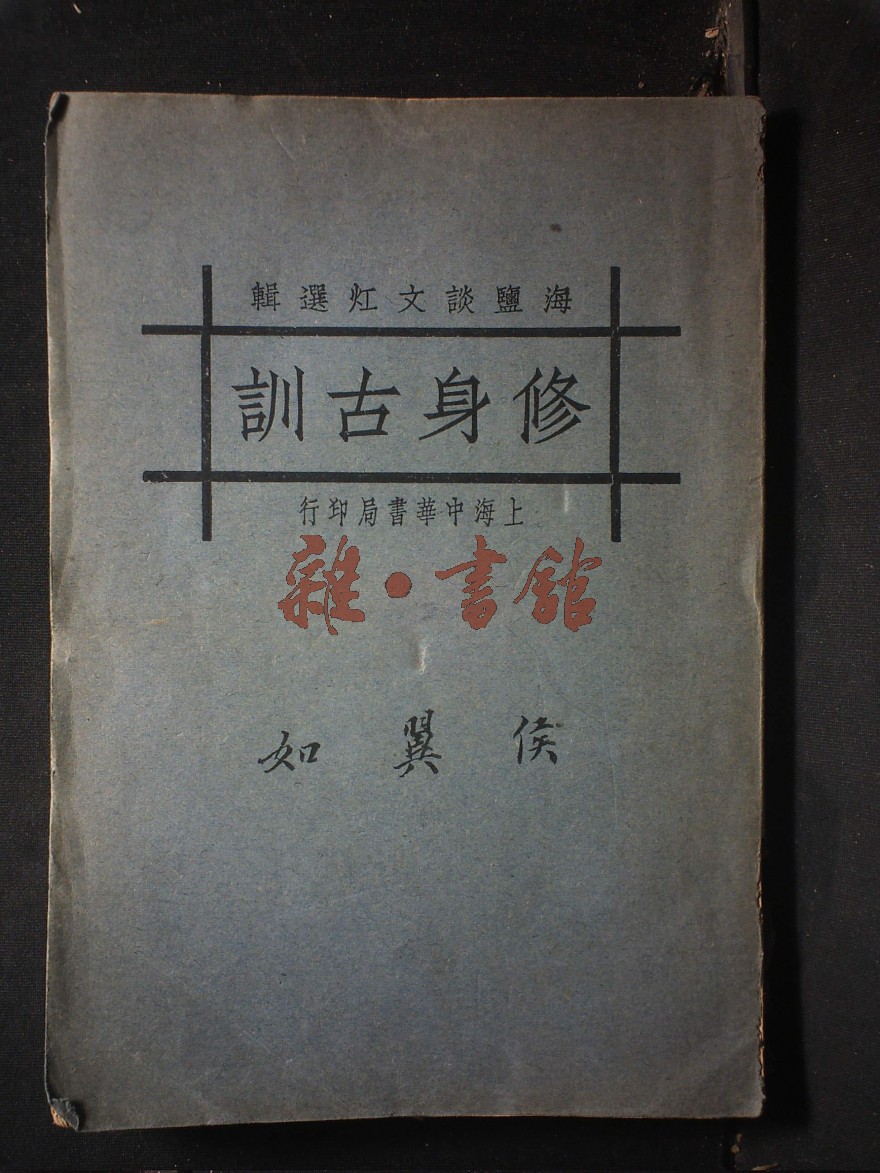 海鹽談文灴選輯
修身古訓
上海中華書局印行
雜·書館
侯翼如